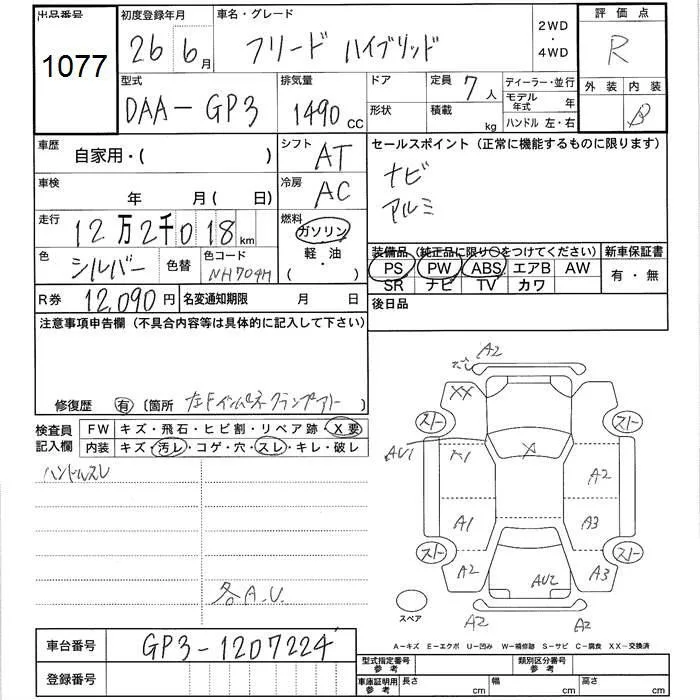 出品番号 1077
初度登録年月 26 6月
車名・グレード フリード ハイブリッド
2WD・4WD
評価点 R
外装 内装 B
型式 DAA-GP3
排気量 1490cc
ドア 形状
定員 7人
積載 kg
ディーラー・並行
モデル年式 年
ハンドル 左・右
車歴 自家用・( )
シフト AT
セールスポイント(正常に機能するものに限ります)
ナビ
アルミ
車検 年 月(日)
冷房 AC
走行 12万2千018km
燃料 ガソリン 軽油・( )
色 シルバー 色替
色コード NH704M
装備品(純正品に限り○をつけてください) 新車保証書
PS PW ABS エアB AW 有・無
SR ナビ TV カワ
R券 12,090円 名変通知期限 月 日
後日品
注意事項申告欄(不具合内容等は具体的に記入して下さい)
修復歴 有 〔箇所
検査員記入欄 FW キズ・飛石・ヒビ割・リペア跡・X要
内装 キズ・汚レ・コゲ・穴・スレ・キレ・破レ
ハンドルスレ
各A.U.
A2
XX
スト スト
AU1 A1 X A2
A1 A3
スト スト
A2 AU2 A3
スペア A2 A2
車台番号 GP3-1207224
登録番号
A-キズ E-エクボ U-凹み W-補修跡 S-サビ C-腐食 XX-交換済
型式指定番号 参考 類別区分番号 参考
車庫証明用 参考 長さ cm 幅 cm 高さ cm